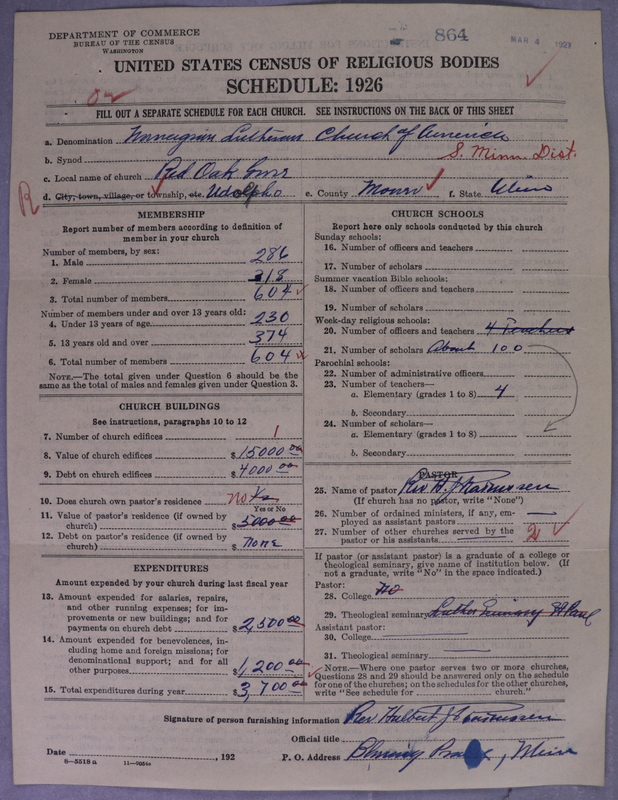 DEPARTMENT OF COMMERCE
BUREAU OF THE CENSUS
WASHINGTON
864
MAR 4 1927
UNITED STATES CENSUS OF RELIGIOUS BODIES
SCHEDULE: 1926
FILL OUT A SEPARATE SCHEDULE FOR EACH CHURCH. SEE INSTRUCTIONS ON THE BACK OF THIS SHEET
a. Denomination Norwegian Lutheran Church of America
b. Synod S. Minn. Dist.
c. Local name of church Red Oak
R
d. City, town, village, or township, etc. Udolpho e. County Mower f. State Minn
MEMBERSHIP
Report number of members according to definition of
member in your church
Number of members, by sex:
1. Male 286
2. Female 318
3. Total number of members 604
Number of members under and over 13 years old:
4. Under 13 years of age 230
5. 13 years old and over 374
6. Total number of members 604
NOTE.—The total given under Question 6 should be
the same as the total of males and females given under Question 3.
CHURCH BUILDINGS
See instructions, paragraphs 10 to 12
7. Number of church edifices 1
8. Value of church edifices $15000 00
9. Debt on church edifices $4000 00
10. Does church own pastor's residence no Yes
Yes or No
11. Value of pastor's residence (if owned by
church) $5000 00
12. Debt on pastor's residence (if owned by
church) $ none
EXPENDITURES
Amount expended by your church during last fiscal year
13. Amount expended for salaries, repairs,
and other running expenses; for im-
provements or new buildings; and for
payments on church debt $2,500 00
14. Amount expended for benevolences, in-
cluding home and foreign missions; for
denominational support; and for all
other purposes $1,200 00
15. Total expenditures during year $3,700 00
CHURCH SCHOOLS
Report here only schools conducted by this church
Sunday schools:
16. Number of officers and teachers
17. Number of scholars
Summer vacation Bible schools:
18. Number of officers and teachers
19. Number of scholars
Week-day religious schools:
20. Number of officers and teachers 4 Teachers
21. Number of scholars About 100
Parochial schools:
22. Number of administrative officers
23. Number of teachers—
a. Elementary (grades 1 to 8) 4
b. Secondary
24. Number of scholars—
a. Elementary (grades 1 to 8)
b. Secondary
PASTOR
25. Name of pastor Rev H. J. Rasmussen
(If church has no pastor, write "None")
26. Number of ordained ministers, if any, em-
ployed as assistant pastors —
27. Number of other churches served by the
pastor or his assistants 2
If pastor (or assistant pastor) is a graduate of a college or
theological seminary, give name of institution below. (If
not a graduate, write "No" in the space indicated.)
Pastor:
28. College No
29. Theological seminary Luther Seminary St Paul
Assistant pastor:
30. College
31. Theological seminary
NOTE.—Where one pastor serves two or more churches,
Questions 28 and 29 should be answered only on the schedule
for one of the churches; on the schedules for the other churches,
write "See schedule for church."
Signature of person furnishing information Rev Halbert J Rasmussen
Official title
Date , 192 P. O. Address Blooming Prairie, Minn
8—5518 a